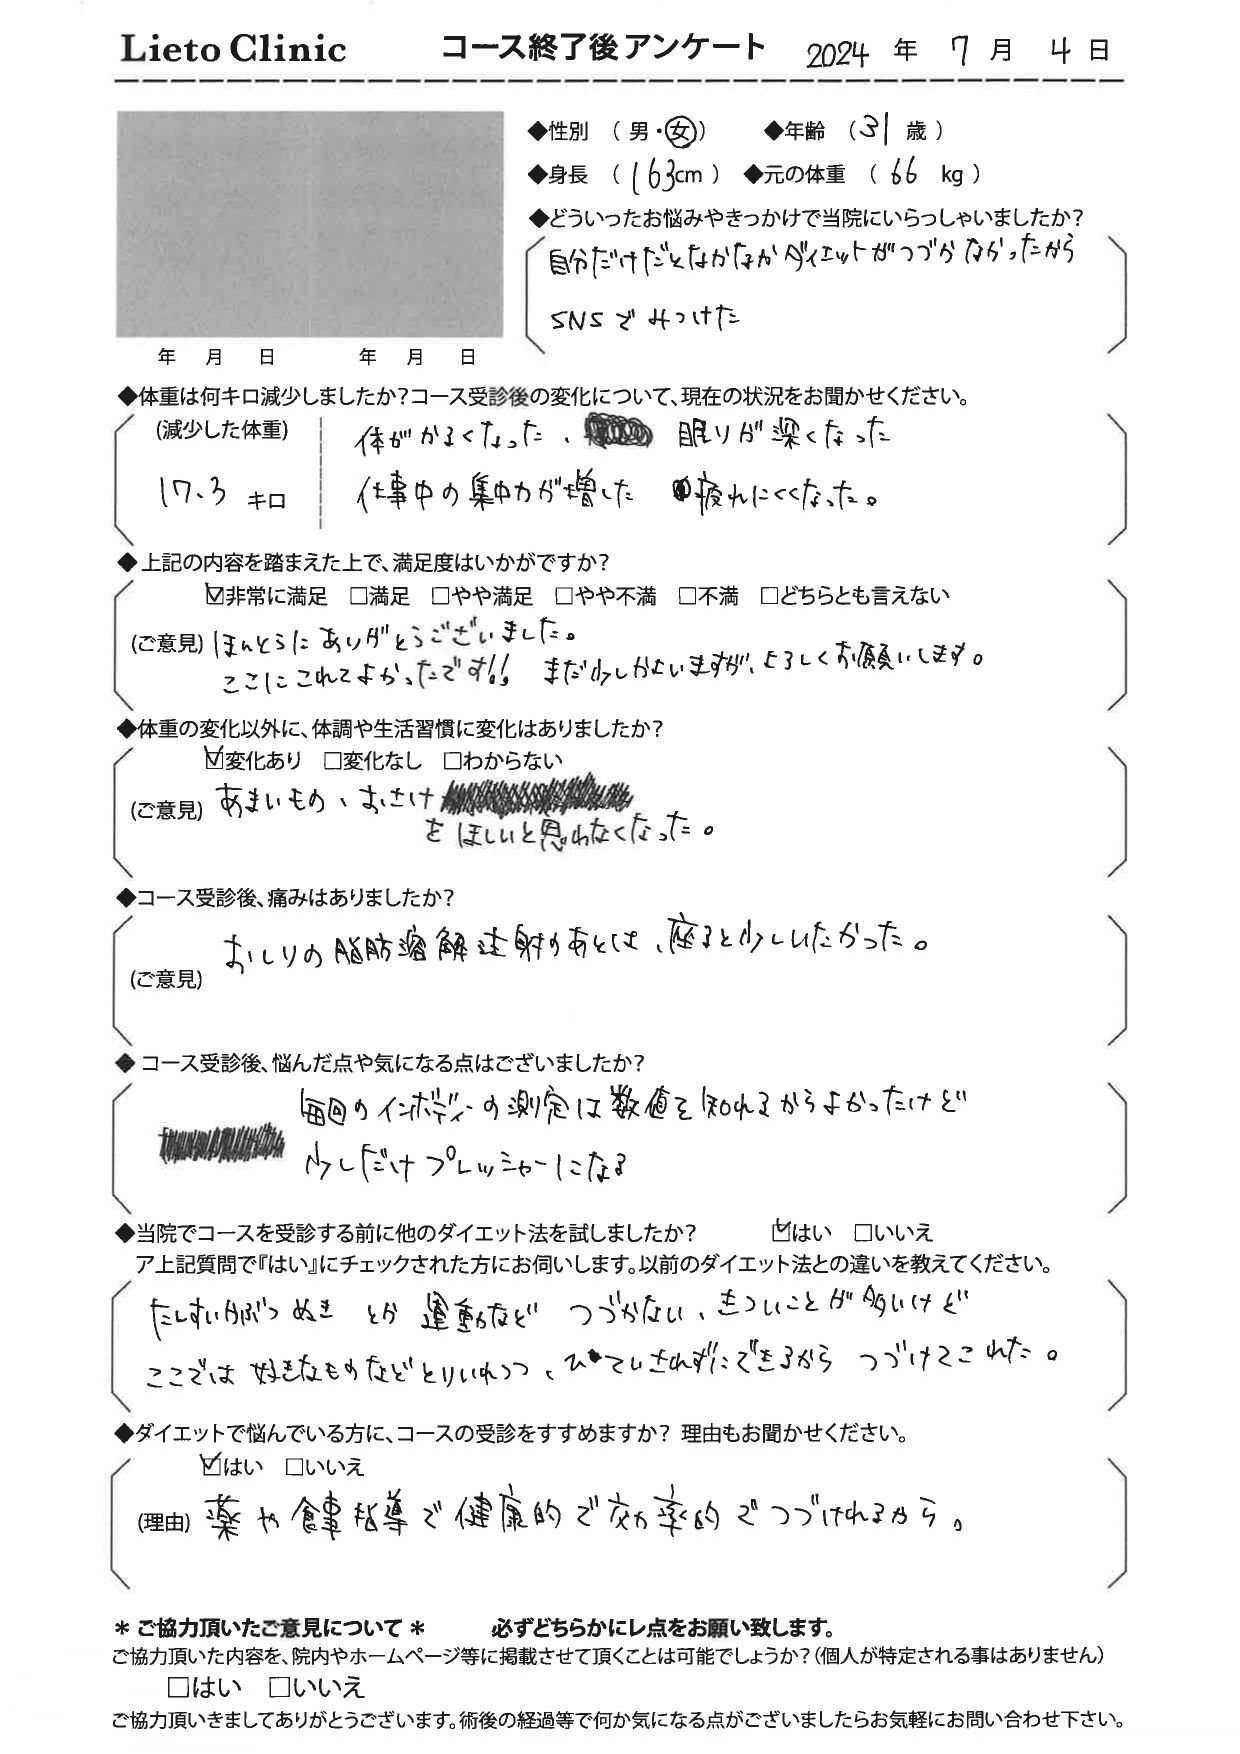 Lieto Clinic コース終了後アンケート 2024 年 7 月 4 日
◆性別 （ 男・女） ◆年齢 （31 歳 ）
◆身長 （ 163cm ） ◆元の体重 （ 66 kg ）
◆どういったお悩みやきっかけで当院にいらっしゃいましたか？
自分だけだとなかなかダイエットがつづかなかったから
SNSでみつけた
年 月 日 年 月 日
◆体重は何キロ減少しましたか？コース受診後の変化について、現在の状況をお聞かせください。
(減少した体重) 体がかるくなった、 眠りが深くなった
17.3 キロ 仕事中の集中力が増した 疲れにくくなった。
◆上記の内容を踏まえた上で、満足度はいかがですか？
☑非常に満足 □満足 □やや満足 □やや不満 □不満 □どちらとも言えない
(ご意見) ほんとうにありがとうございました。
ここにこれてよかったです!! まだ少しかよいますが、よろしくお願いします。
◆体重の変化以外に、体調や生活習慣に変化はありましたか？
☑変化あり □変化なし □わからない
(ご意見) あまいもの、おさけ
をほしいと思わなくなった。
◆コース受診後、痛みはありましたか？
おしりの脂肪溶解注射のあとは、座ると少しいたかった。
(ご意見)
◆コース受診後、悩んだ点や気になる点はございましたか？
毎回のインボディーの測定は数値を知れるからよかったけど
少しだけプレッシャーになる
◆当院でコースを受診する前に他のダイエット法を試しましたか？ ☑はい □いいえ
ア上記質問で『はい』にチェックされた方にお伺いします。以前のダイエット法との違いを教えてください。
たんすいかぶつぬきとか運動など つづかない、きついことが多いけど
ここでは好きなものなどとりいれつつ、ひていされずにできるから つづけてこれた。
◆ダイエットで悩んでいる方に、コースの受診をすすめますか？ 理由もお聞かせください。
☑はい □いいえ
(理由) 薬や食事指導で健康的で効率的でつづけれるから。
＊ご協力頂いたご意見について＊ 必ずどちらかにレ点をお願い致します。
ご協力頂いた内容を、院内やホームページ等に掲載させて頂くことは可能でしょうか？（個人が特定される事はありません）
□はい □いいえ
ご協力頂いきましてありがとうございます。術後の経過等で何か気になる点がございましたらお気軽にお問い合わせ下さい。